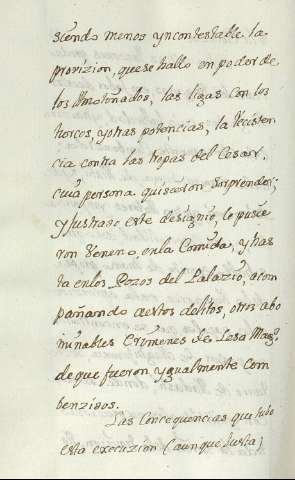 sciendo menos yncontestable la
provizion, que se hallo en poder de
los Amotinados, las ligas con los
torcos, y otras potencias, la recisten
cia contra las tropas del Cesar,
cuia persona quiscieron sorprender;
y frustrado este designio, le puscie
ron Veneno, en la Comida, y has
ta en los Pozos del Palazio, acom
pañando a estos delitos, otros abo
minables Crõmenes de Lesa Mag.
de que fueron ygualmente com
benzidos.
Las Concequencias que tubo
esta execuzion (aunque Justa)